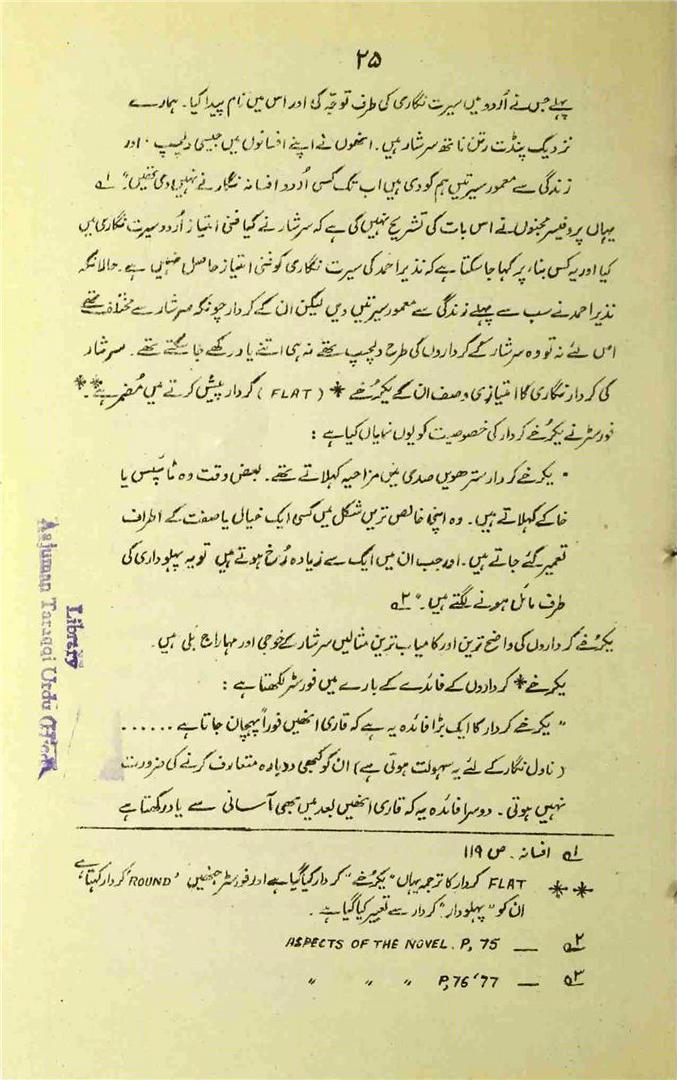 ۲۵
پہلے جس نے اُردو میں سیرت نگاری کی طرف توجّہ کی اور اس میں نام پیدا کیا۔ ہمارے
نزدیک پنڈت رتن ناتھ سرشار ہیں۔ انھوں نے اپنے افسانوں میں جیسی دلچسپ، اور
زندگی سے معمور سیرتیں ہم کو دی ہیں اب تک کسی اُردو افسانہ نگار نے نہیں دی تھیں" ۱ھ
یہاں پروفیسر مجنوں نے اس بات کی تشریح نہیں کی ہے کہ سرشار نے کیا فنی امتیاز اُردو سیرت نگاری میں
کیا اور یہ کس بناء پر کہا جاسکتا ہے کہ نذیر احمد کی سیرت نگاری کو فنی امتیاز حاصل نہیں ہے۔ حالانکہ
نذیر احمد نے سب سے پہلے زندگی سے معمور سیرتیں دیں لیکن ان کے کردار چونکہ سرشار سے مختلف تھے
اس لئے نہ تو وہ سرشار کے کرداروں کی طرح دلچسپ تھے نہ ہی اتنے یاد رکھے جا سکتے تھے۔ سرشار
کی کردار نگاری کا امتیازی وصف ان کے یکرُخے * (FLAT) کردار پیش کرنے میں مُضمر ہے۔**
فورسٹر نے یکرُخے کردار کی خصوصیت کو یوں نمایاں کیا ہے :
" یکرخے کردار سترھویں صدی میں مزاحیہ کہلاتے تھے۔ بعض وقت وہ ٹائپس یا
خاکے کہلاتے ہیں۔ وہ اپنی خالص ترین شکل میں کسی ایک خیال یا صفت کے اطراف
تعمیر کئے جاتے ہیں۔ اور جب ان میں ایک سے زیادہ رُخ ہوتے ہیں تو یہ پہلوداری کی
طرف مائل ہونے لگتے ہیں۔" ۲ھ
یکرُخے کرداروں کی واضح ترین اور کامیاب ترین مثالیں سرشار کے خوجی اور مہاراج بلی ہیں۔
یکرخے * کرداروں کے فائدے کے بارے میں فورسٹر لکھتا ہے :
" یکرخے کردار کا ایک بڑا فائدہ یہ ہے کہ قاری انھیں فوراً پہچان جاتا ہے ......
(ناول نگار کے لئے یہ سہولت ہوتی ہے) ان کو کبھی دوبارہ متعارف کرنے کی ضرورت
نہیں ہوتی۔ دوسرا فائدہ یہ کہ قاری انھیں بعد میں بھی آسانی سے یاد رکھتا ہے
۱ھ افسانہ۔ ص ۱۱۹
** FLAT کردار کا ترجمہ یہاں "یکرُخے" کردار کیا گیا ہے اور فورسٹر جنھیں 'ROUND' کردار کہتا ہے
ان کو "پہلودار" کردار سے تعبیر کیا گیا ہے۔
۲ھ — ASPECTS OF THE NOVEL. P, 75
۳ھ — P, 76'77 " " "
Library
Anjuman Taraqqi Urdu (Hind)